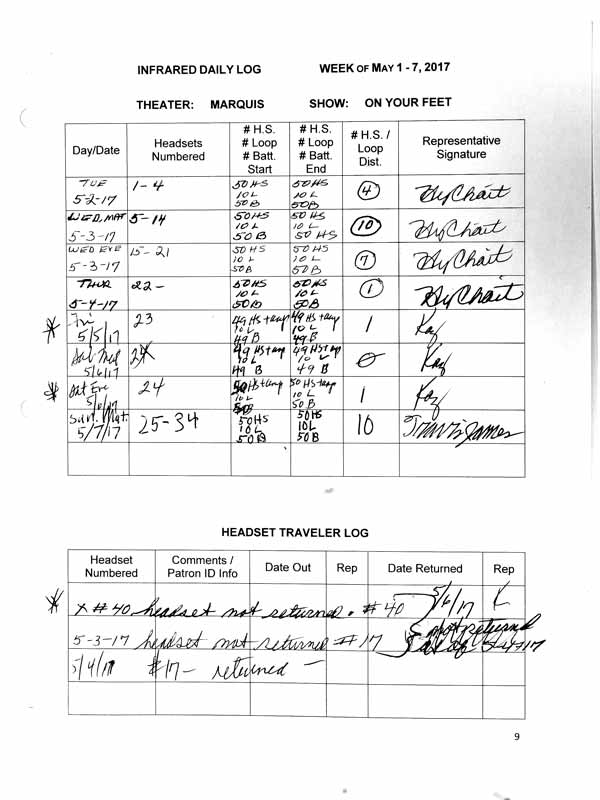 INFRARED DAILY LOG WEEK OF MAY 1 - 7, 2017
THEATER: MARQUIS SHOW: ON YOUR FEET
Day/Date Headsets Numbered # H.S. # Loop # Batt. Start # H.S. # Loop # Batt. End # H.S. / Loop Dist. Representative Signature
TUE 5-2-17 1-4 50HS 10L 50B 50HS 10L 50B 4 Hy Chait
WED, MAT 5-3-17 5-14 50HS 10L 50B 50HS 10L 50HS 10 Hy Chait
WED EVE 5-3-17 15-21 50HS 10L 50B 50HS 10L 50B 7 Hy Chait
THUR 5-4-17 22- 50HS 10L 50B 50HS 10L 50B 1 Hy Chait
* Fri 5/5/17 23 49 HS + amp 10L 49 B 49 HS + amp 10L 49B 1 Kay
Sat Mat 5/6/17 49 HS + amp 10L 49 B 49 HS + amp 10 L 49 B 0 Kay
* Sat Eve 24 50 HS + amp 10L 50 HS + amp 10L 50 B 1 Kay
Sun. Mat. 5/7/17 25-34 50HS 10L 50B 50HS 10L 50B 10 Travis James
HEADSET TRAVELER LOG
Headset Numbered Comments / Patron ID Info Date Out Rep Date Returned Rep
* X # 40 headset not returned. # 40 5/6/17 K
5-3-17 headset not returned # 17 not returned as of 5-4-17
5/4/17 #17 - returned -
9